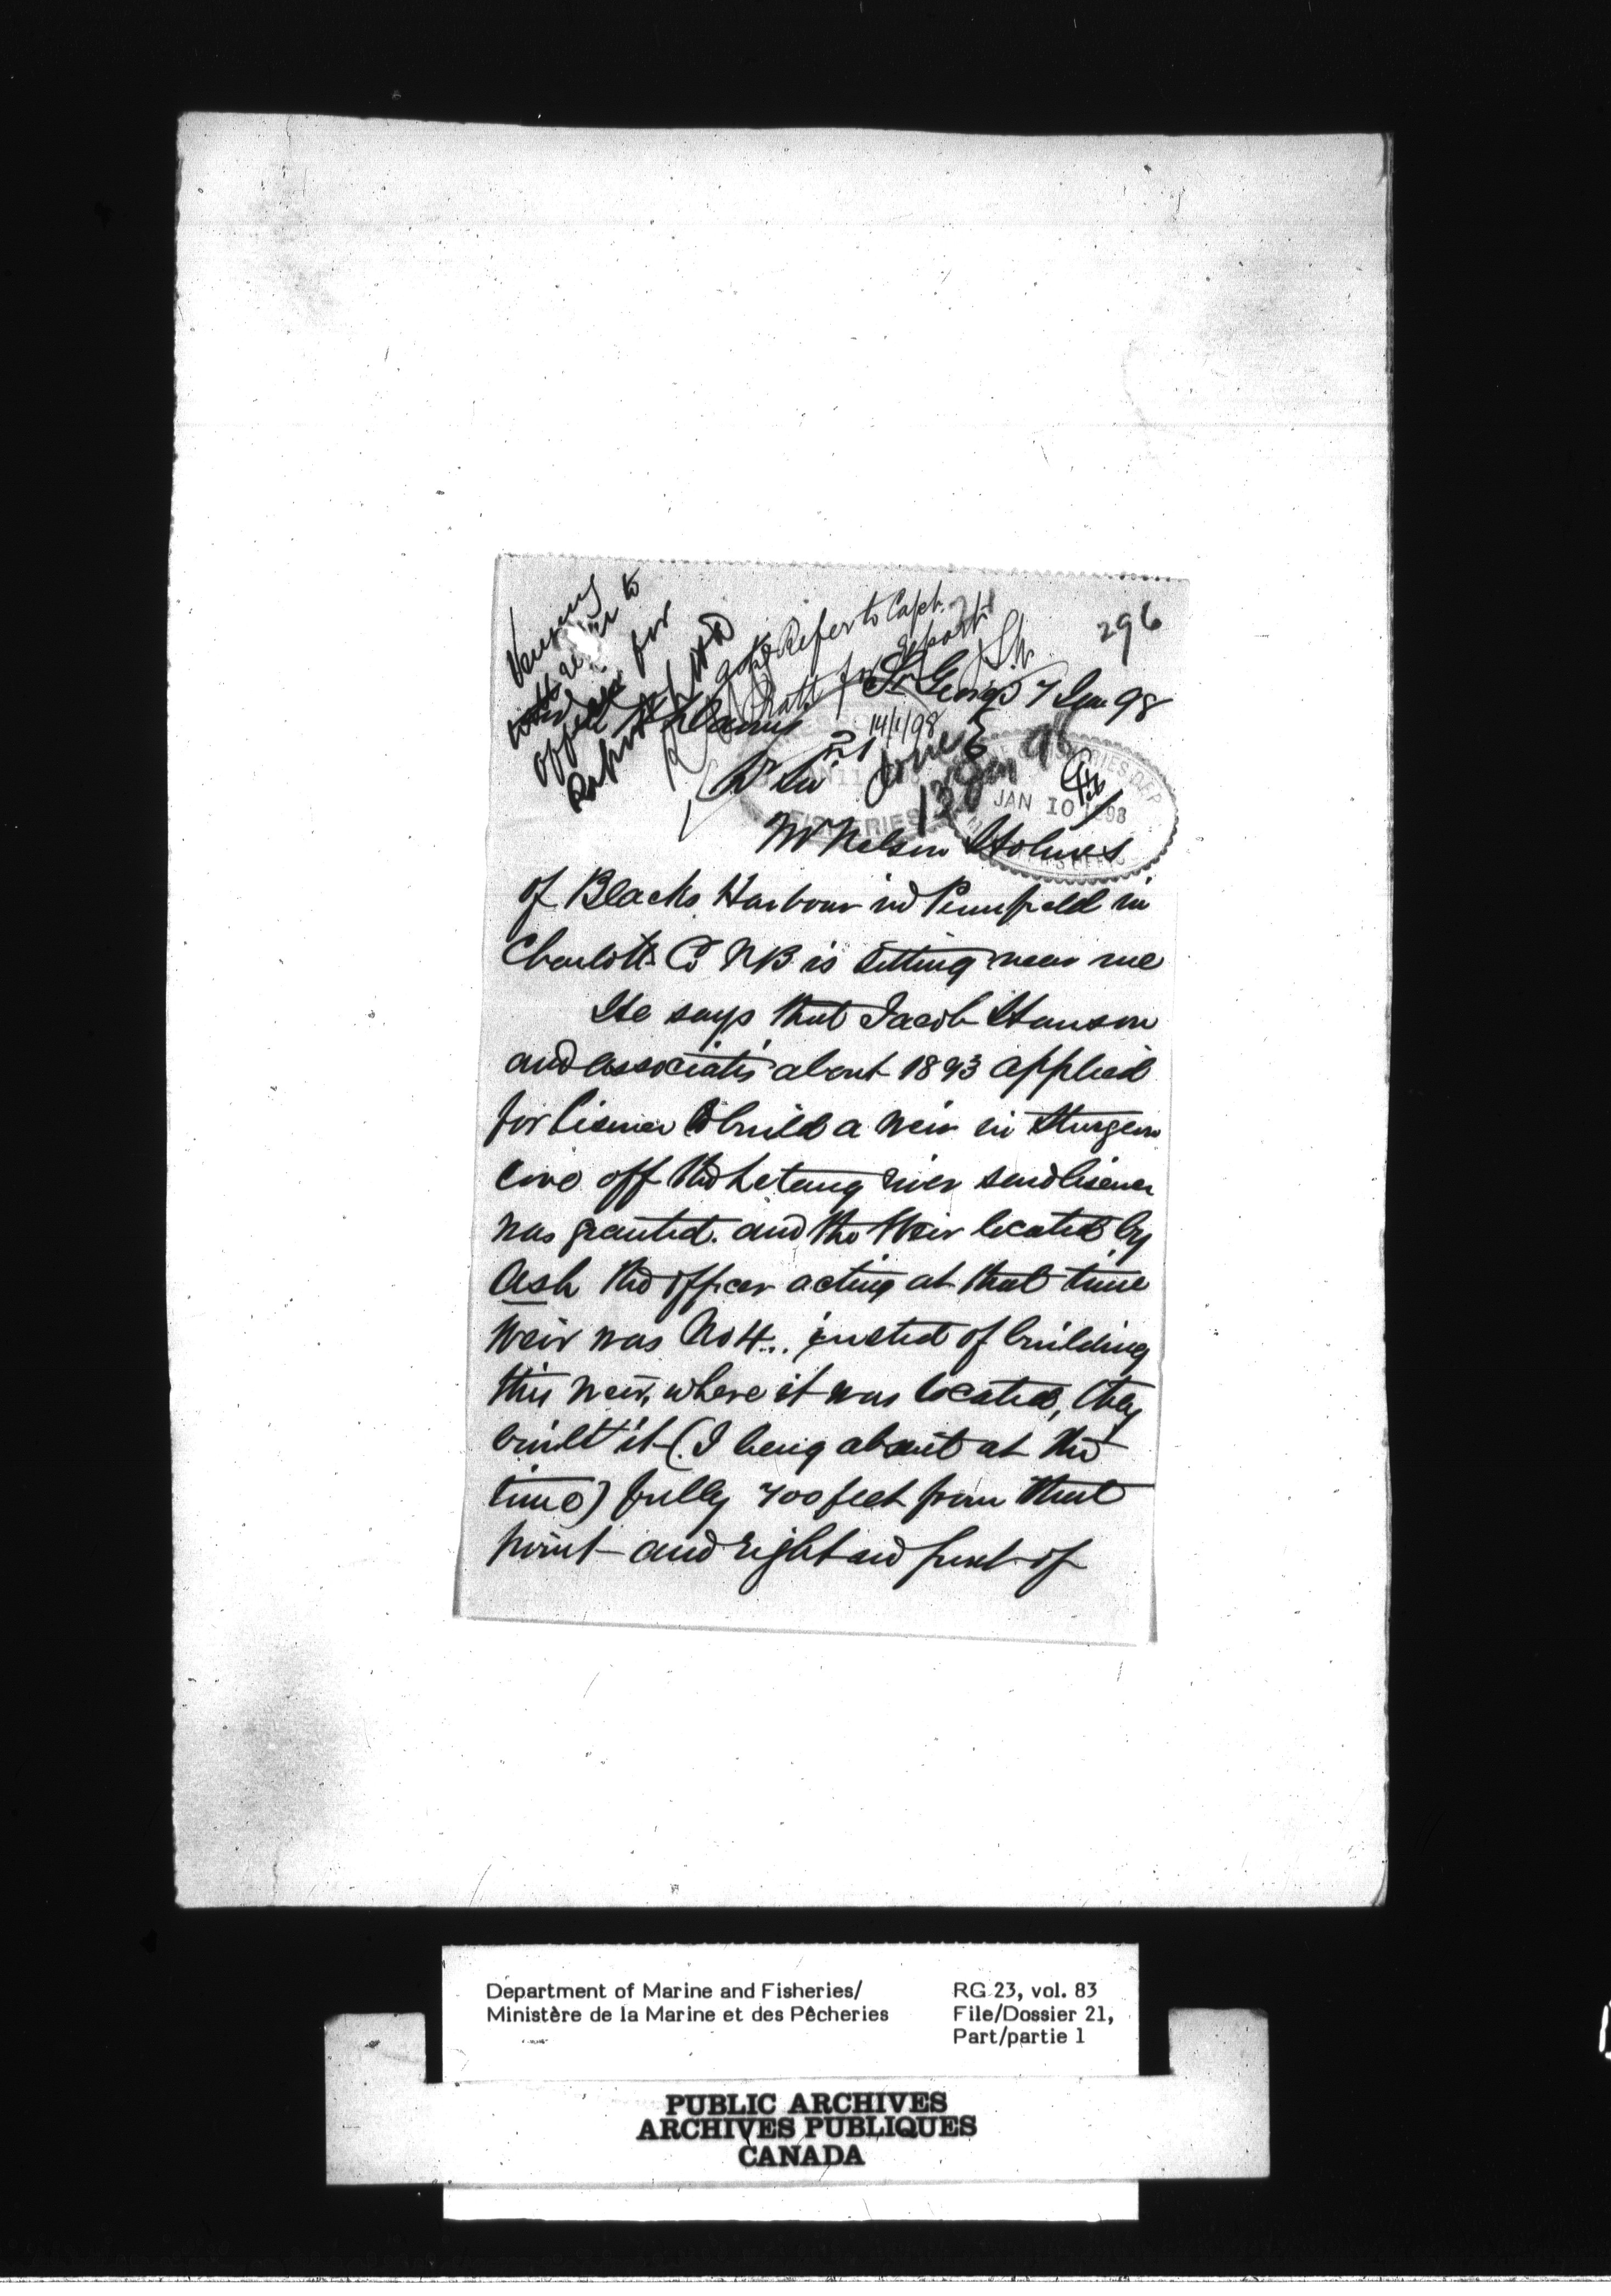 296
Refer to Capt.
Pratt for report
14/1/98
St George 7 Jan 98
21
Done
13 Jan 98
JAN 11
FISHERIES
FISHERIES DEP
JAN 10 1898
Dr Sir
Mr Nelson Holmes
of Blacks Harbour in Pennfield in
Charlotte Co NB is sitting near me
He says that Jacob Hanson
and associates about 1893 applied
for lisence to build a weir in Sturgeon
Cove off the Letang river said lisence
was granted. and the Weir located by
Ash the officer acting at that time
Weir was No 4... insted of building
this weir, where it was located, they
built it (I being absent at the
time) fully 700 feet from that
point and right in front of
Department of Marine and Fisheries/
Ministère de la Marine et des Pêcheries
RG 23, vol. 83
File/Dossier 21,
Part/partie 1
PUBLIC ARCHIVES
ARCHIVES PUBLIQUES
CANADA